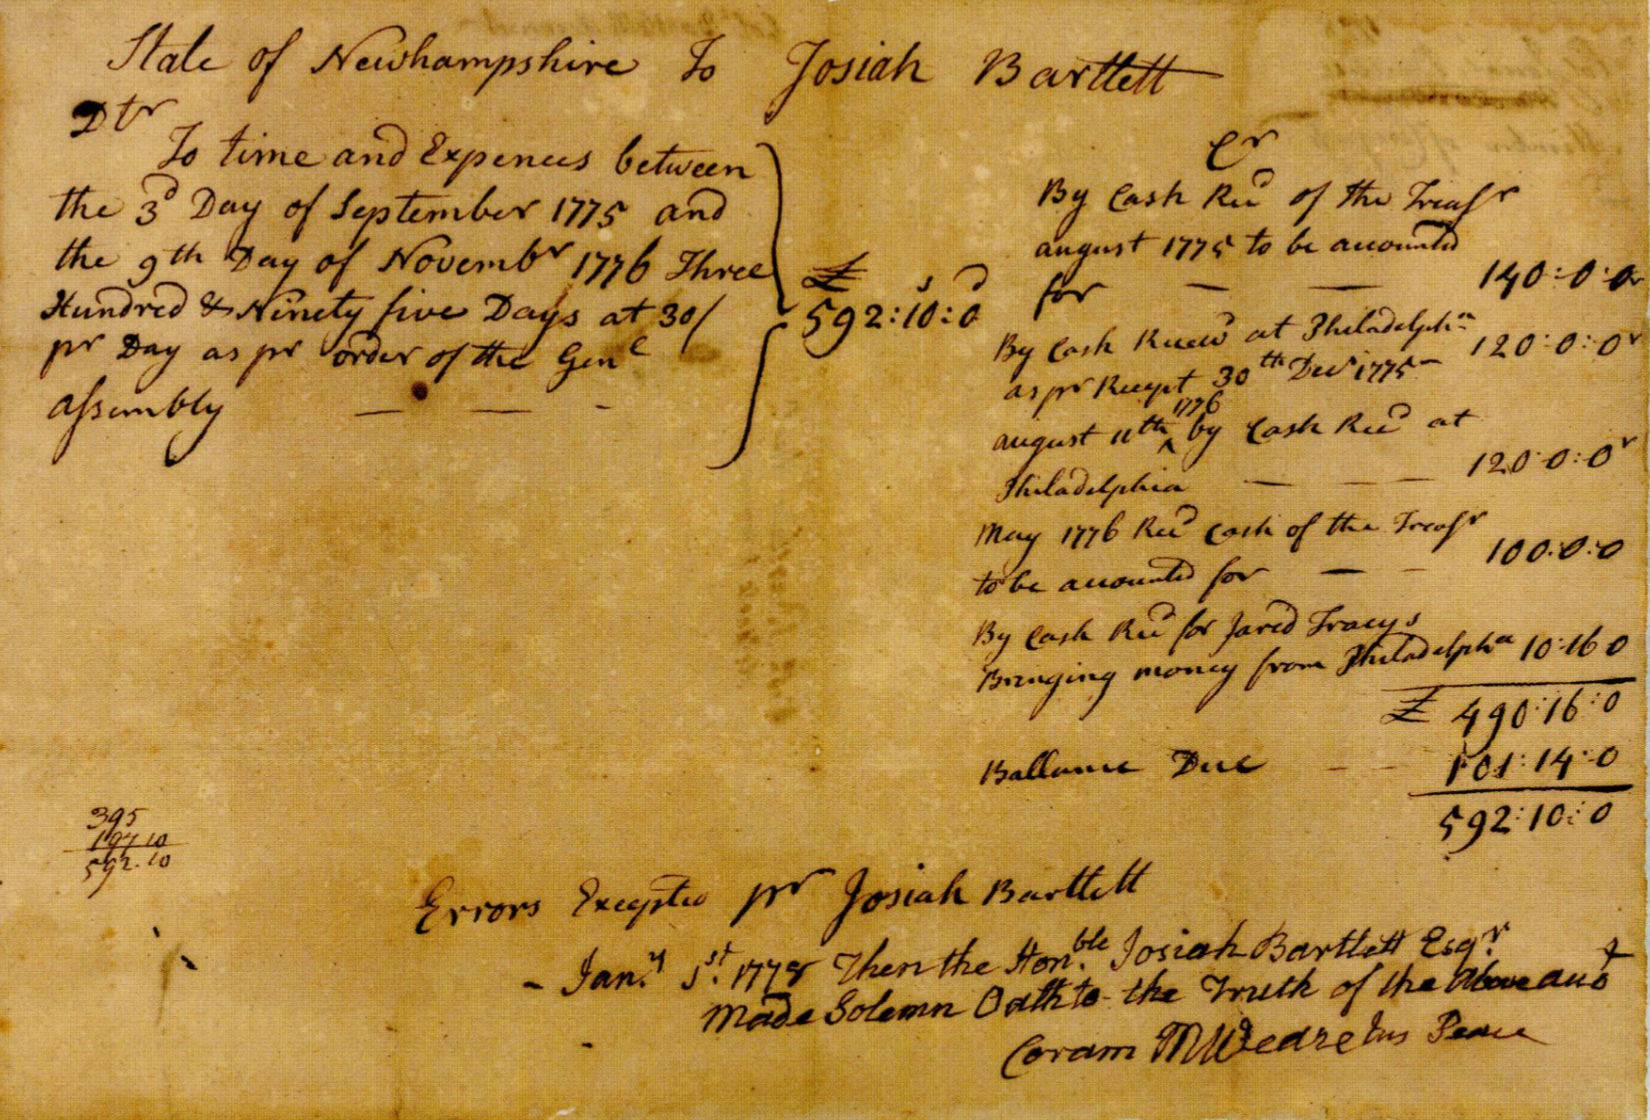 State of Newhampshire To Josiah Bartlett
Dtr
To time and Expences between
the 3d Day of September 1775 and
the 9th Day of Novembr 1776 Three
Hundred & Ninety five Days at 30/
pr Day as pr order of the Genl
assembly — — -
£ s D
592:10:0
Cr
By Cash Recd of the Treasr
august 1775 to be accounted
for — — 140:0:0
By Cash Receivd at Philadelpha
as pr Receipt 30th Decr 1775 — 120:0:0
august 11th 1776 by Cash Recd at
Philadelphia — — — 120:0:0
May 1776 Recd Cash of the Treasr
to be accounted for — — 100:0:0
By Cash Recd for Jared Tracys
Bringing money from Philadelpha 10:16 0
£ 490:16:0
Ballance Due — — 101:14:0
592:10:0
395
197 10
592.10
Errors Excepted pr Josiah Bartlett
- Jany 1st. 1778 Then the Honble Josiah Bartlett Esqr
Made Solemn Oath to the Truth of the Above acct
Coram M Weare Jus Peace